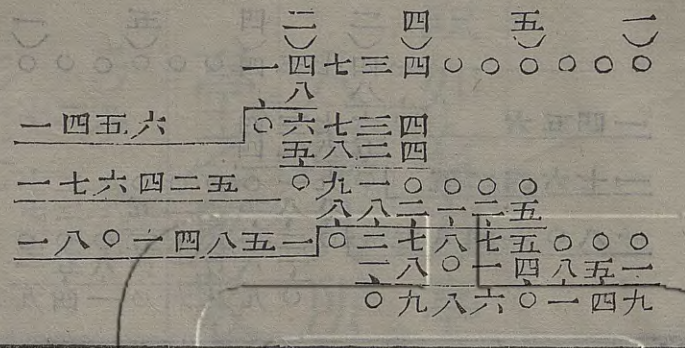 二） 四） 五） 一）
一四七三四〇〇〇〇〇〇
八
一四五六 〇六七三四
五八二四
一七六四二五 〇九一〇〇〇〇
八八二一二五
一八〇一四八五一 〇二七八七五〇〇〇
一八〇一四八五一
〇九八六〇一四九